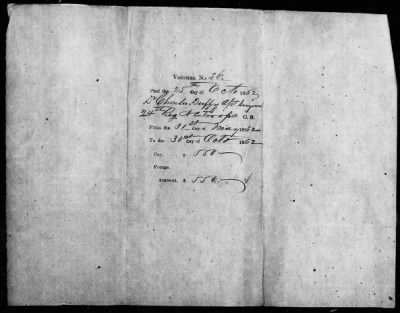 Voucher No. 26.
Paid the 25th day of Octo 1862
Dr Charles Duffy Ast Surgeon
24th Reg N C troops C.S.
From the 31st day of May 1862
To the 31st day of Octo 1862
Pay, $ 550
Forage,
Amount, $ 550.